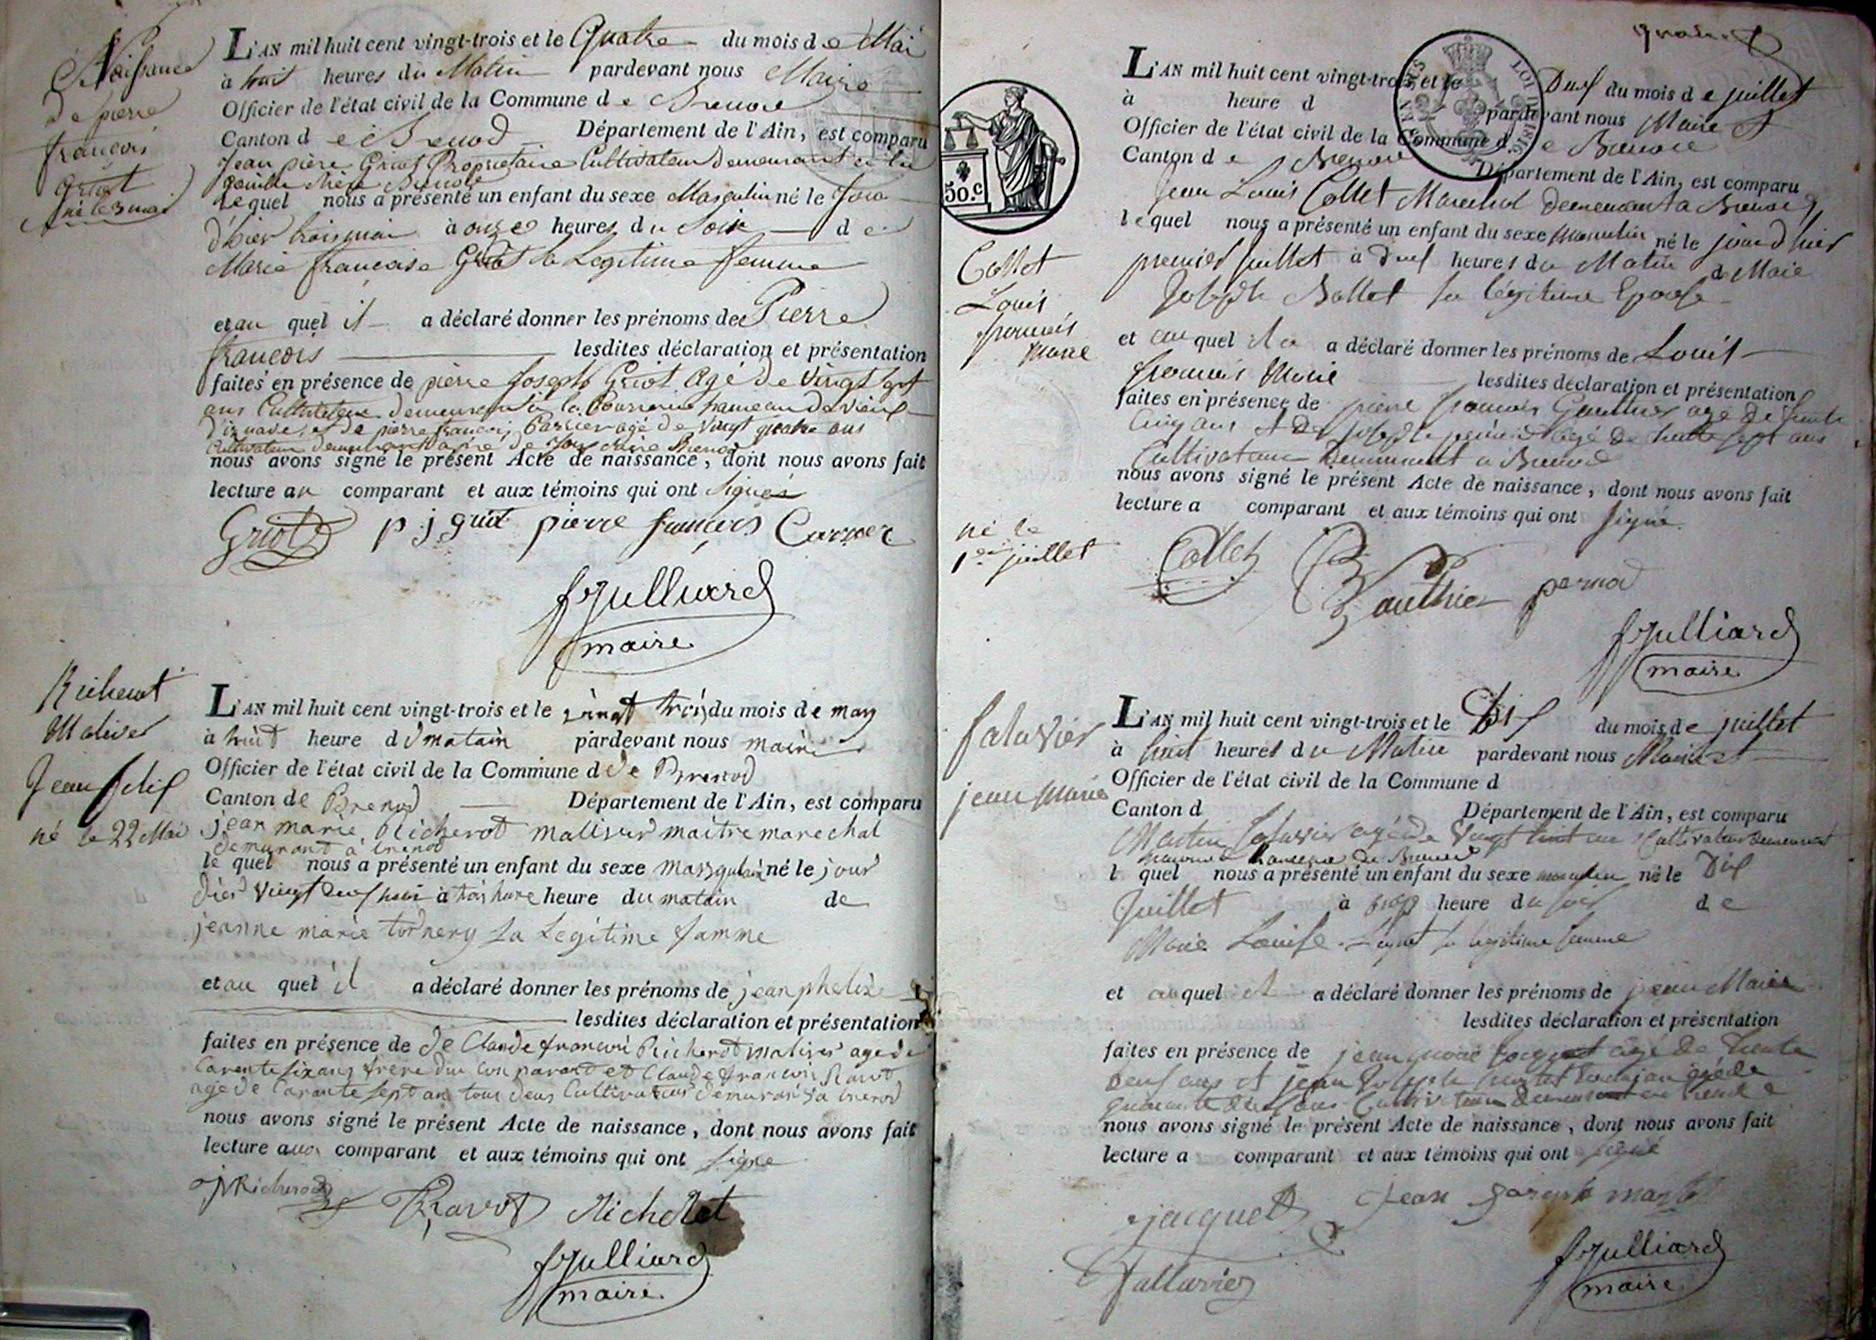 Naissance
de pierre
françois
griot
né le 3 mai
L'AN mil huit cent vingt-trois et le Quatre du mois de Mai
à huit heures du Matin pardevant nous Maire
Officier de l'état civil de la Commune de Brenod
Canton de Brenod Département de l'Ain, est comparu
Jean pière Griot Propriétaire Cultivateur demeurant
lequel nous a présenté un enfant du sexe Masculin né le Jour
d'hier trois mai à onze heures du Soir de
Marie françoise Griot sa Legitime femme
et au quel il a déclaré donner les prénoms de Pierre
françois lesdites déclaration et présentation
faites en présence de pierre Joseph Griot agé de vingt sept
ans Cultivateur demeurant à hameau de vieux
d'izenave, et de pierre françois Carrier agé de vingt quatre ans
Cultivateur demeurant
nous avons signé le présent Acte de naissance, dont nous avons fait
lecture au comparant et aux témoins qui ont signés
Griot p j griot pierre françois Carrier
Julliard
maire
Richerot
Maliver
Jean felix
né le 22 Mai
L'AN mil huit cent vingt-trois et le vingt trois du mois de may
à huit heure du matain pardevant nous maire
Officier de l'état civil de la Commune d de Brenod
Canton de Brenod Département de l'Ain, est comparu
jean marie Richerot maliver maitre marechal
demurant a brenod
le quel nous a présenté un enfant du sexe masqulain né le jour
dier vingt deux mai à trois hure heure du matain de
jeanne marie tornery sa Legitime famme
et au quel il a déclaré donner les prénoms de jean phelix
lesdites déclaration et présentation
faites en présence de de Claude francois Richerot maliver age de
Carente six ans frère du Comparant et Claude francois Ravot
age de Carante sept an tous deux Cultivateurs demurant a brenod
nous avons signé le présent Acte de naissance, dont nous avons fait
lecture aux comparant et aux témoins qui ont signe
JM Richerot Ravot Richerot
Julliard
maire
L'AN mil huit cent vingt-trois et le Deux du mois de juillet
à heure d pardevant nous Maire
Officier de l'état civil de la Commune de Brenod
Canton de Brenod Département de l'Ain, est comparu
50.c
Jean Louis Collet Marechal demeurant a Brenod
lequel nous a présenté un enfant du sexe masculin né le jour d'hier
premier juillet à deux heures du Matin de Marie
Josephe Ballet sa légitime Epouse
Collet
Louis
francois
Marie
et auquel il a a déclaré donner les prénoms de Louis
francois Marie lesdites déclaration et présentation
faites en présence de pierre francois Gauthier agé de trente
cinq ans et de joseph agé de trente sept ans
Cultivateurs demeurant a Brenod
nous avons signé le présent Acte de naissance, dont nous avons fait
lecture a comparant et aux témoins qui ont signé
né le
1er juillet
Collet Gauthier pernod
Julliard
maire
falavier
jean Marie
L'AN mil huit cent vingt-trois et le Dix du mois de juillet
à huit heures du Matin pardevant nous Maire
Officier de l'état civil de la Commune d
Canton d Département de l'Ain, est comparu
Martin falavier agé de vingt huit ans Cultivateur demeurant
l quel nous a présenté un enfant du sexe masculin né le Dix
Juillet à heure du soir de
Marie Louise sa légitime femme
et auquel il a déclaré donner les prénoms de jean Marie
lesdites déclaration et présentation
faites en présence de jean marie jacquet agé de trente
neuf ans et jean Joseph agé de
quarante deux ans Cultivateurs demeurant
nous avons signé le présent Acte de naissance, dont nous avons fait
lecture a comparant et aux témoins qui ont signé
jacquet Jean Joseph
fallavier
Julliard
maire